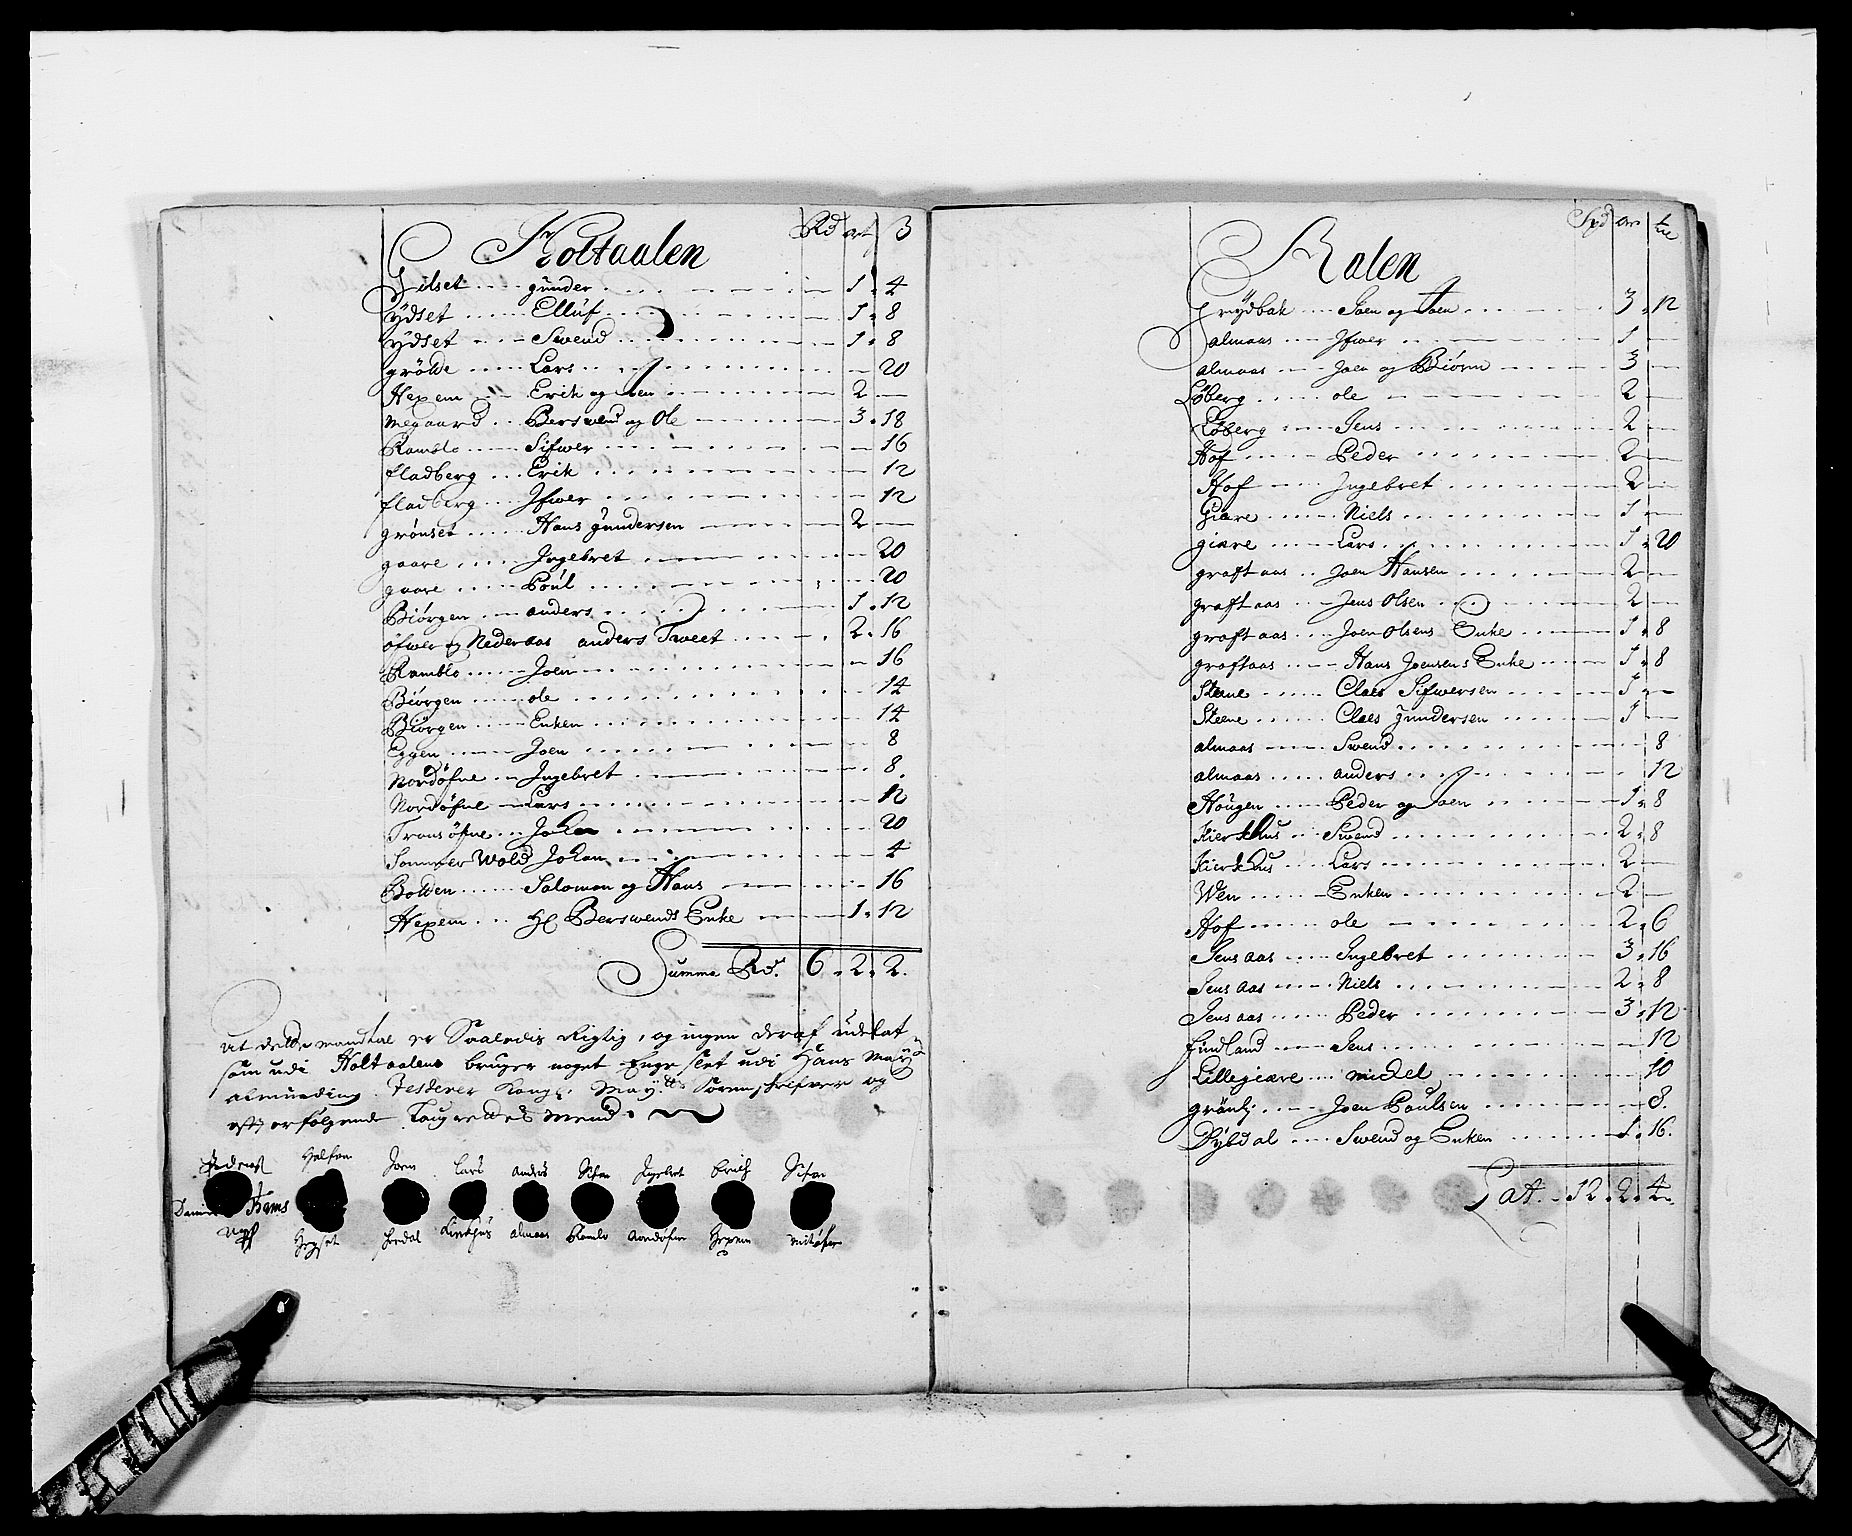 Holtaalen Rd ort ß
Hilset gunder 1 4
ydset Elluf 1 8
ydset Swend 1 8
grödde Lars 20
Hexem Erik og Joen 2
Megaard Berswend og Ole 3 18
Ramblo Sifwer 16
fladberg Erik 12
fladberg Jfwer 12
grönset Hans gundersen 2
gaare Jngebret 20
gaare Poul 20
Biörgen anders 1 12
öfwer og Nederaas anders Tweet 2 16
Ramblo Joen 16
Biörgen ole 14
Biörgen Enken 14
Eggen Joen 8
Nordöfne Jngebret 8
Nordöfne Lars 12
Transöfne Johan 20
Sommer Wold Johan 4
Bolden Salomon og Hans 16
Hexem Berswends Enke 1 12
Summa Rd. 6 2 2
At dette mandtal er Saaledis Rigtig, og ingen deraf udelat
som udi Holtaalens bruger noget Enge slet udi Hans May
almuding Testerer Kong. May Soren skrifver og
efterfølgende Laugrettes mend
Halfvor Joen Lars anders Sifver Jngebret Erich Sifver
Hems
Hegset Kirkhus almaas Ramlo Nordöfne Hexem
Aalen Spd ort
Frydbak Joen og Joen 3 12
almaas Jfwer 1
almaas Joen og Biörn 3
Löberg ole 2
Löberg Jens 2
Hof Peder 2
Hof Jngebret 2
Giære Niels 1
giære Lars 1 20
graftaas Joen Hansen 2
graftaas Jens Olsen 2
graftaas Joen Olsens Enke 1 8
graftaas Hans Joensens Enke 1 8
Steene Claes Sifwersen 1
Steene Claes gundersen 1
almaas Swend 8
almaas anders 12
Hougen Peder og Joen 1 8
Kierkhus Swend 2 8
Kierkhus Lars 2
Wen Enken 2
Hof ole 2 6
Jensaas Jngebret 3 16
Jensaas Niels 2 8
Jensaas Peder 3 12
findland Jens 12
Lillegiære Michel 10
grönli Joen Poulsen 8
Dybdal Swend og Enken 1 16
Lat 12 2 4